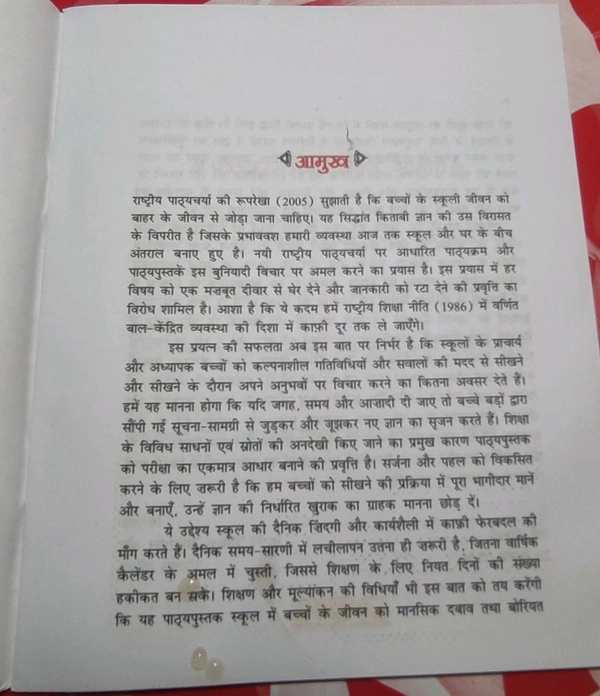 आमुख
राष्ट्रीय पाठ्यचर्या की रूपरेखा (2005) सुझाती है कि बच्चों के स्कूली जीवन को
बाहर के जीवन से जोड़ा जाना चाहिए। यह सिद्धांत किताबी ज्ञान की उस विरासत
के विपरीत है जिसके प्रभाववश हमारी व्यवस्था आज तक स्कूल और घर के बीच
अंतराल बनाए हुए है। नयी राष्ट्रीय पाठ्यचर्या पर आधारित पाठ्यक्रम और
पाठ्यपुस्तकें इस बुनियादी विचार पर अमल करने का प्रयास है। इस प्रयास में हर
विषय को एक मज़बूत दीवार से घेर देने और जानकारी को रटा देने की प्रवृत्ति का
विरोध शामिल है। आशा है कि ये कदम हमें राष्ट्रीय शिक्षा नीति (1986) में वर्णित
बाल-केंद्रित व्यवस्था की दिशा में काफ़ी दूर तक ले जाएँगे।
इस प्रयत्न की सफलता अब इस बात पर निर्भर है कि स्कूलों के प्राचार्य
और अध्यापक बच्चों को कल्पनाशील गतिविधियों और सवालों की मदद से सीखने
और सीखने के दौरान अपने अनुभवों पर विचार करने का कितना अवसर देते हैं।
हमें यह मानना होगा कि यदि जगह, समय और आज़ादी दी जाए तो बच्चे बड़ों द्वारा
सौंपी गई सूचना-सामग्री से जुड़कर और जूझकर नए ज्ञान का सृजन करते हैं। शिक्षा
के विविध साधनों एवं स्रोतों की अनदेखी किए जाने का प्रमुख कारण पाठ्यपुस्तक
को परीक्षा का एकमात्र आधार बनाने की प्रवृत्ति है। सर्जना और पहल को विकसित
करने के लिए ज़रूरी है कि हम बच्चों को सीखने की प्रक्रिया में पूरा भागीदार मानें
और बनाएँ, उन्हें ज्ञान की निर्धारित खुराक का ग्राहक मानना छोड़ दें।
ये उद्देश्य स्कूल की दैनिक ज़िंदगी और कार्यशैली में काफ़ी फेरबदल की
माँग करते हैं। दैनिक समय-सारणी में लचीलापन उतना ही ज़रूरी है, जितना वार्षिक
कैलेंडर के अमल में चुस्ती, जिससे शिक्षण के लिए नियत दिनों की संख्या
हकीकत बन सके। शिक्षण और मूल्यांकन की विधियाँ भी इस बात को तय करेंगी
कि यह पाठ्यपुस्तक स्कूल में बच्चों के जीवन को मानसिक दबाव तथा बोरियत